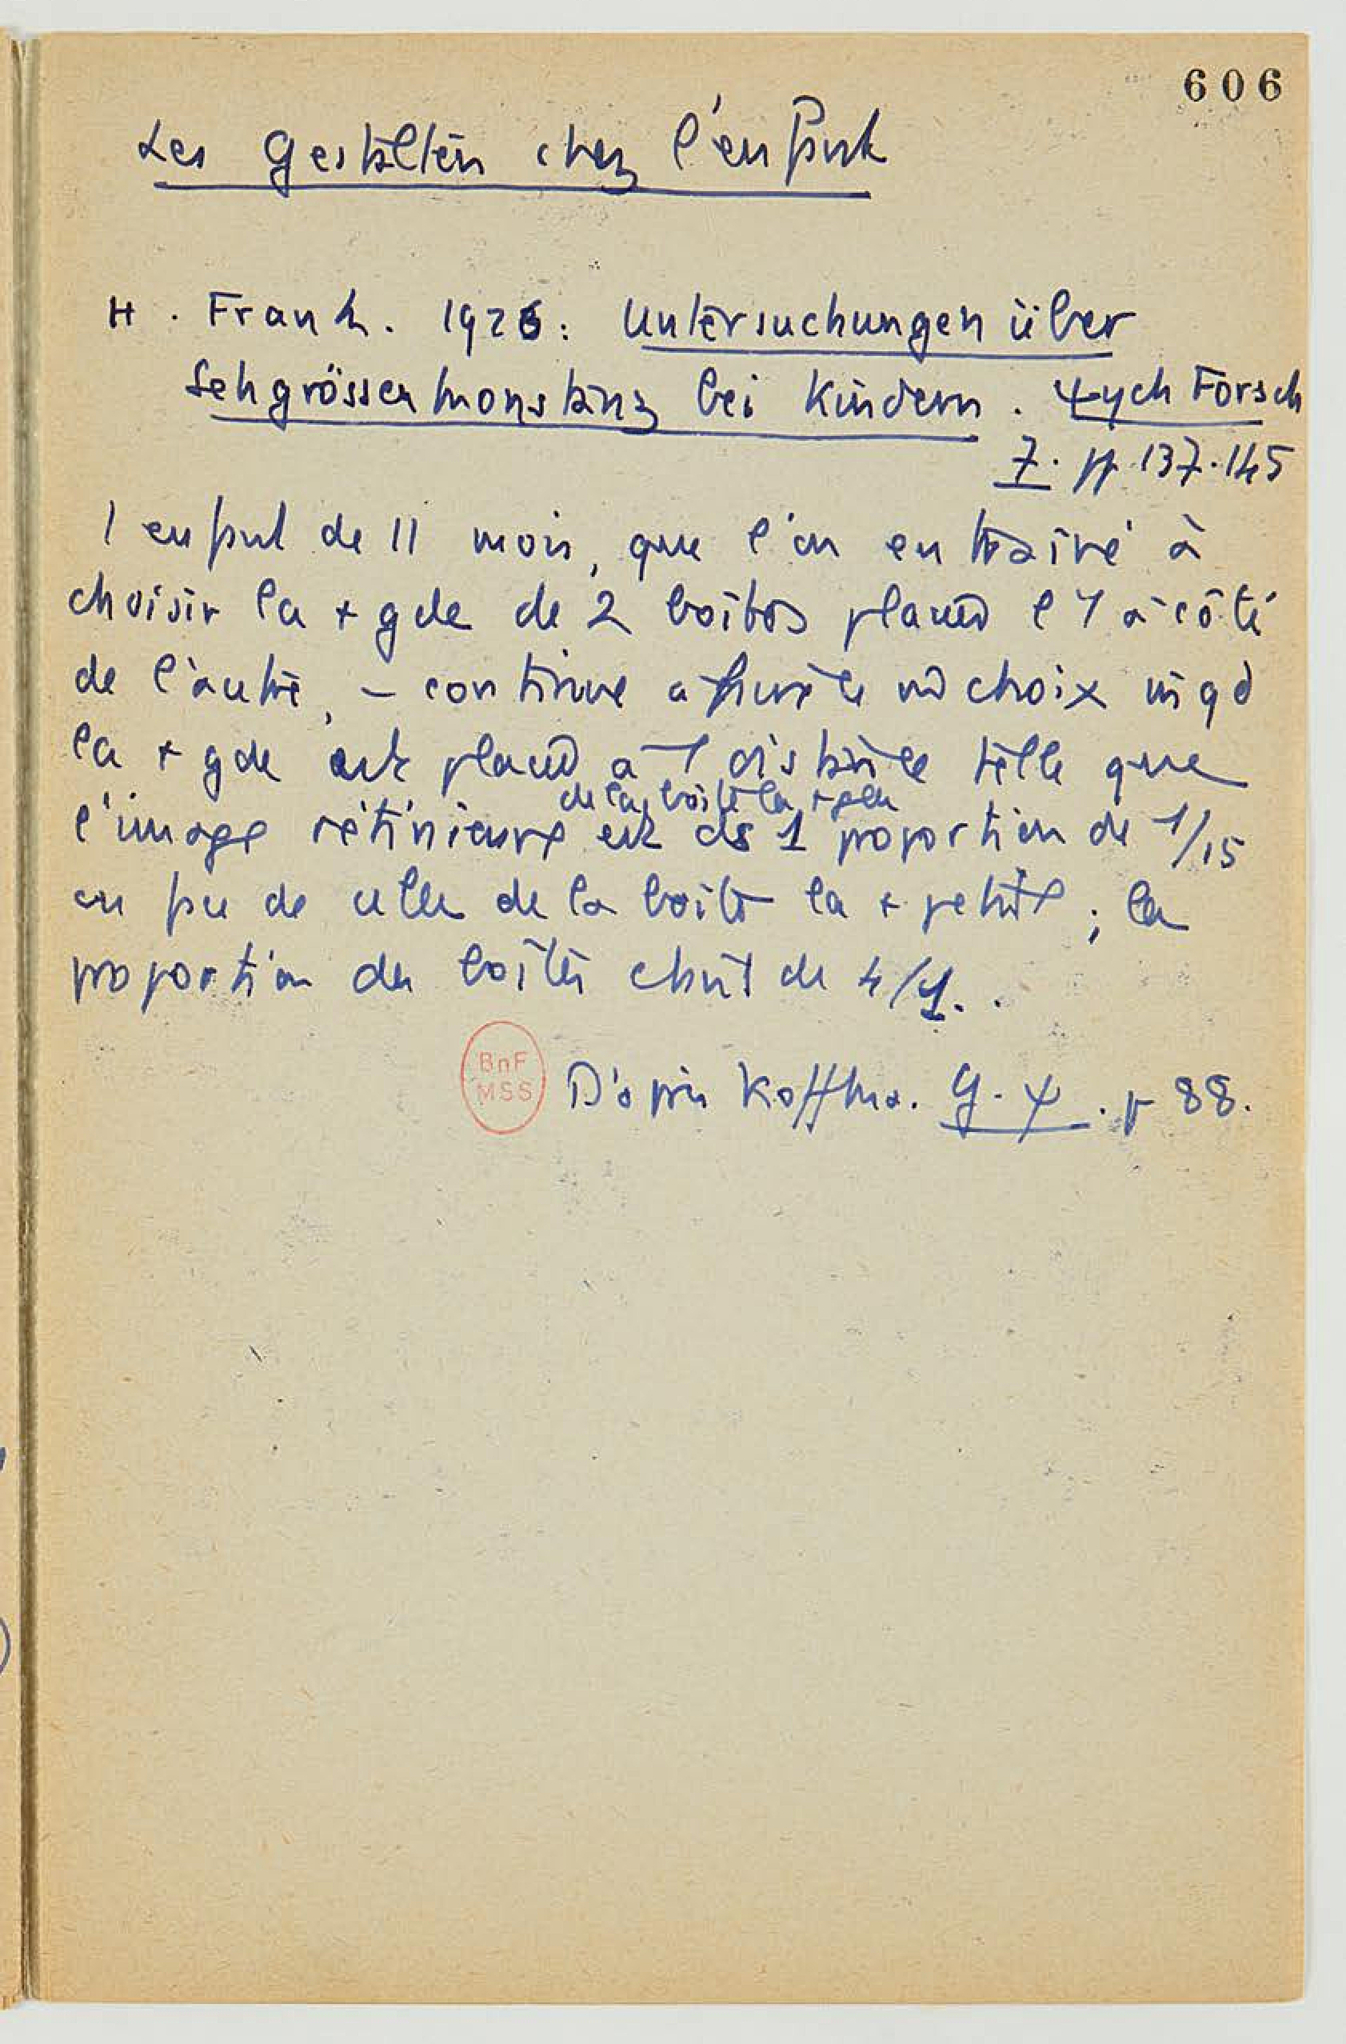 606
Les Gestalten chez l'enfant
H. Frank. 1926 : Untersuchungen über
Sehgrössenkonstanz bei Kindern. Ψych Forsch
7. pp. 137-145
1 enfant de 11 mois, que l'on entraîne à
choisir la + gde de 2 boîtes placées l'1 à côté
de l'autre, – continue à faire le choix qd
la + gde est placée à 1 distance telle que
de la boîte la + gde
l'image rétinienne est ds 1 proportion de 1/15
de celle de la boîte la + petite ; la
proportion des boîtes étant de 4/1.
BnF
MSS
D'après Koffka. G. Ψ. p 88.